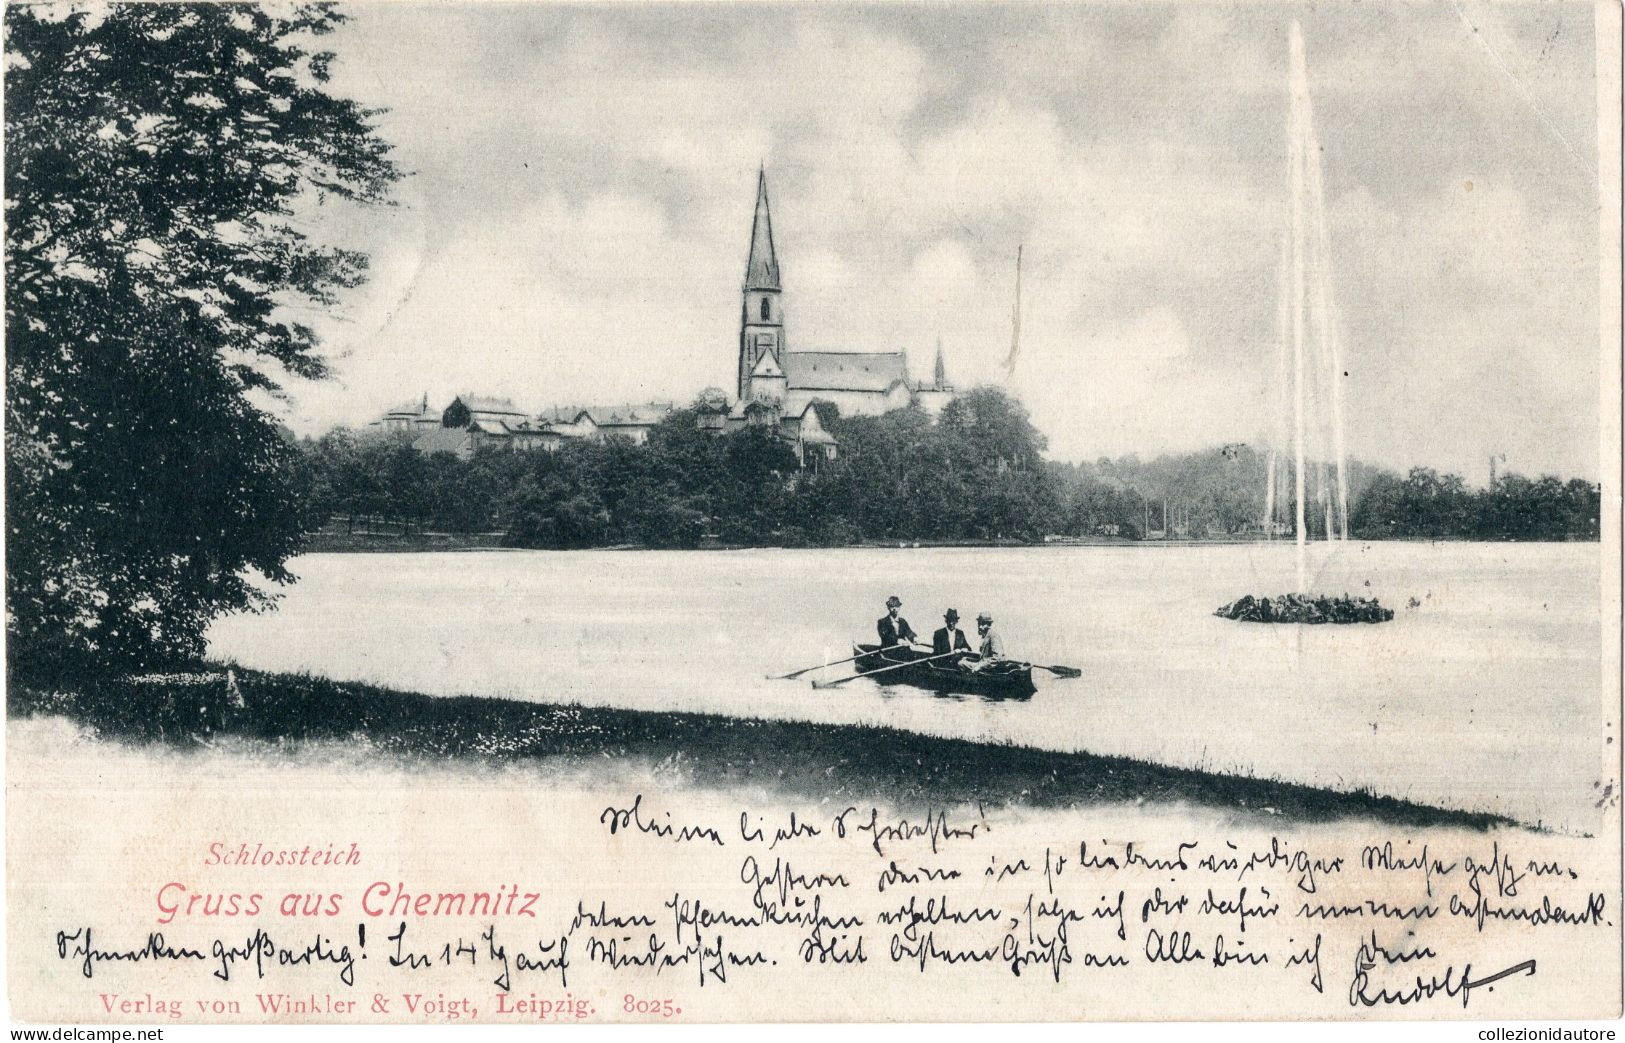 Meine liebe Schwester!
Gestern Deine in so liebenswürdiger Weise gespen-
deten Pfannkuchen erhalten, sage ich Dir dafür meinen besten Dank.
Schmecken großartig! In 14 Tg auf Wiedersehen. Mit bestem Gruß an Alle bin ich Dein
Rudolf.
Schlossteich
Gruss aus Chemnitz
Verlag von Winkler & Voigt, Leipzig. 8025.
https://www.delcampe.net
collezionidautore